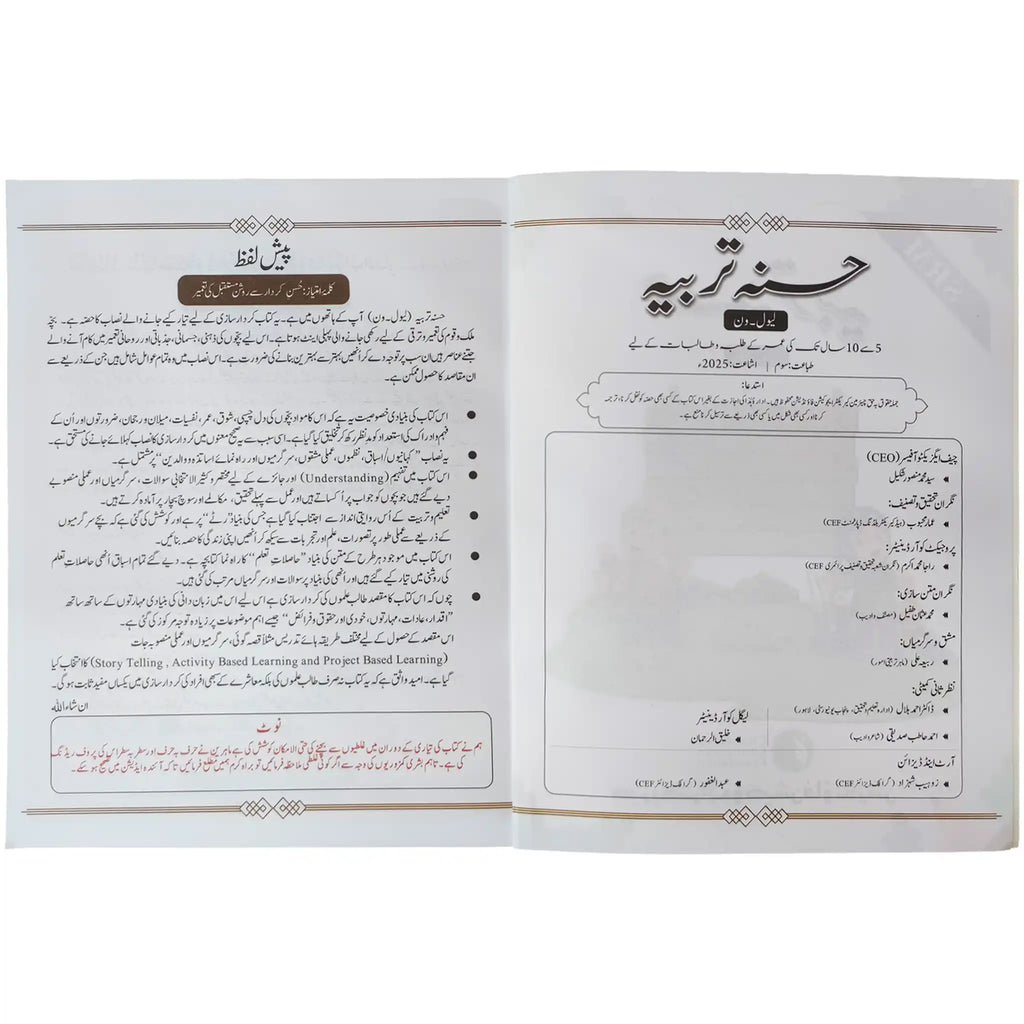 حسنہ تربیہ
لیول۔ون
5 سے 10 سال تک کی عمر کے طلبہ و طالبات کے لیے
طباعت: سوم | اشاعت: 2025ء
استدعا:
جملہ حقوق بحق چیئرمین کیریکٹر ایجوکیشن فاؤنڈیشن محفوظ ہیں۔ ادارہ ہذا کی اجازت کے بغیر اس کتاب کے کسی بھی حصہ کو نقل کرنا، ترجمہ
کرنا اور کسی بھی شکل میں یا کسی بھی ذریعے سے ترسیل کرنا منع ہے۔
چیف ایگزیکٹو آفیسر (CEO)
سید محمد منصور شکیل
نگران تحقیق و تصنیف:
عمار محبوب (ہیڈ کیریکٹر بلڈنگ ڈیپارٹمنٹ CEF)
پروجیکٹ کوآرڈینیٹر:
راجا محمد اکرم (نگران شعبہ تحقیق و تصنیف پرائمری CEF)
نگران متن سازی:
محمد عثمان طفیل (مصنف و ادیب)
مشق و سرگرمیاں:
ربیعہ علی (ماہر تربیتی امور)
نظر ثانی کمیٹی:
ڈاکٹر احمد بلال (ادارہ تعلیم و تحقیق، پنجاب یونیورسٹی، لاہور)
احمد حاطب صدیقی (شاعر و ادیب)
لیگل کوآرڈینیٹر
خلیق الرحمان
آرٹ اینڈ ڈیزائن
زوہیب شہزاد (گرافک ڈیزائنر CEF)
عبدالغفور (گرافک ڈیزائنر CEF)
پیش لفظ
کلمۂ امتیاز: حُسن کردار سے روشن مستقبل کی تعمیر
حسنہ تربیہ (لیول۔ون) آپ کے ہاتھوں میں ہے۔ یہ کتاب کردار سازی کے لیے تیار کیے جانے والے نصاب کا حصہ ہے۔ بچہ
ملک و قوم کی تعمیر و ترقی کے لیے رکھی جانے والی پہلی اینٹ ہوتا ہے۔ اس لیے بچوں کی ذہنی، جسمانی، جذباتی اور روحانی تعمیر میں کام آنے والے
جتنے عناصر ہیں ان سب پر توجہ دے کر اُنھیں بہتر سے بہترین بنانے کی ضرورت ہے۔ اس نصاب میں وہ تمام عوامل شامل ہیں جن کے ذریعے سے
ان مقاصد کا حصول ممکن ہے۔
اس کتاب کی بنیادی خصوصیت یہ ہے کہ اس کا مواد بچوں کی دل چسپی، شوق، عمر، نفسیات، میلان و رجحان، ضرورتوں اور اُن کے
فہم و ادراک کی استعداد کو مدِنظر رکھ کر تخلیق کیا گیا ہے۔ اسی سبب سے یہ صحیح معنوں میں کردار سازی کا نصاب کہلائے جانے کی مستحق ہے۔
یہ نصاب "کہانیوں/اسباق، نظموں، عملی مشقوں، سرگرمیوں اور راہ نمائے اساتذہ و والدین" پر مشتمل ہے۔
اس کتاب میں تفہیم (Understanding) اور جائزے کے لیے مختصر و کثیر الانتخابی سوالات، سرگرمیاں اور عملی منصوبے
دیے گئے ہیں جو بچوں کو جواب پر اُکساتے ہیں اور عمل سے پہلے تحقیق، مکالمے اور سوچ بچار پر آمادہ کرتے ہیں۔
تعلیم و تربیت کے اُس روایتی انداز سے اجتناب کیا گیا ہے جس کی بنیاد "رٹے" پر ہے اور کوشش کی گئی ہے کہ بچے سرگرمیوں
کے ذریعے سے عملی طور پر تصورات، علم اور تجربات سے سیکھ کر انھیں اپنی زندگی کا حصہ بنائیں۔
اس کتاب میں موجود ہر طرح کے متن کی بنیاد "حاصلاتِ تعلم" کا راہ نما کتابچہ ہے۔ دیے گئے تمام اسباق انھی حاصلاتِ تعلم
کی روشنی میں تیار کیے گئے ہیں اور اُنھی کی بنیاد پر سوالات اور سرگرمیاں مرتب کی گئی ہیں۔
چوں کہ اس کتاب کا مقصد طالب علموں کی کردار سازی ہے اس لیے اس میں زبان دانی کی بنیادی مہارتوں کے ساتھ ساتھ
"اقدار، عادات، مہارتوں، خودی اور حقوق و فرائض" جیسے اہم موضوعات پر زیادہ توجہ مرکوز کی گئی ہے۔
اس مقصد کے حصول کے لیے مختلف طریقہ ہائے تدریس مثلاً قصہ گوئی، سرگرمیوں اور عملی منصوبہ جات
(Story Telling , Activity Based Learning and Project Based Learning) کا انتخاب کیا
گیا ہے۔ امید واثق ہے کہ یہ کتاب نہ صرف طالب علموں کی بلکہ معاشرے کے بھی افراد کی کردار سازی میں یکساں مفید ثابت ہو گی۔
ان شاء اللہ
نوٹ
ہم نے کتاب کی تیاری کے دوران میں غلطیوں سے بچنے کی حتی الامکان کوشش کی ہے ماہرین نے حرف بہ حرف اور سطر بہ سطر اس کی پروف ریڈنگ
کی ہے۔ تاہم بشری کمزوریوں کی وجہ سے اگر کوئی غلطی ملاحظہ فرمائیں تو براہ کرم ہمیں مطلع فرمائیں تاکہ آئندہ ایڈیشن میں تصحیح ہو سکے۔